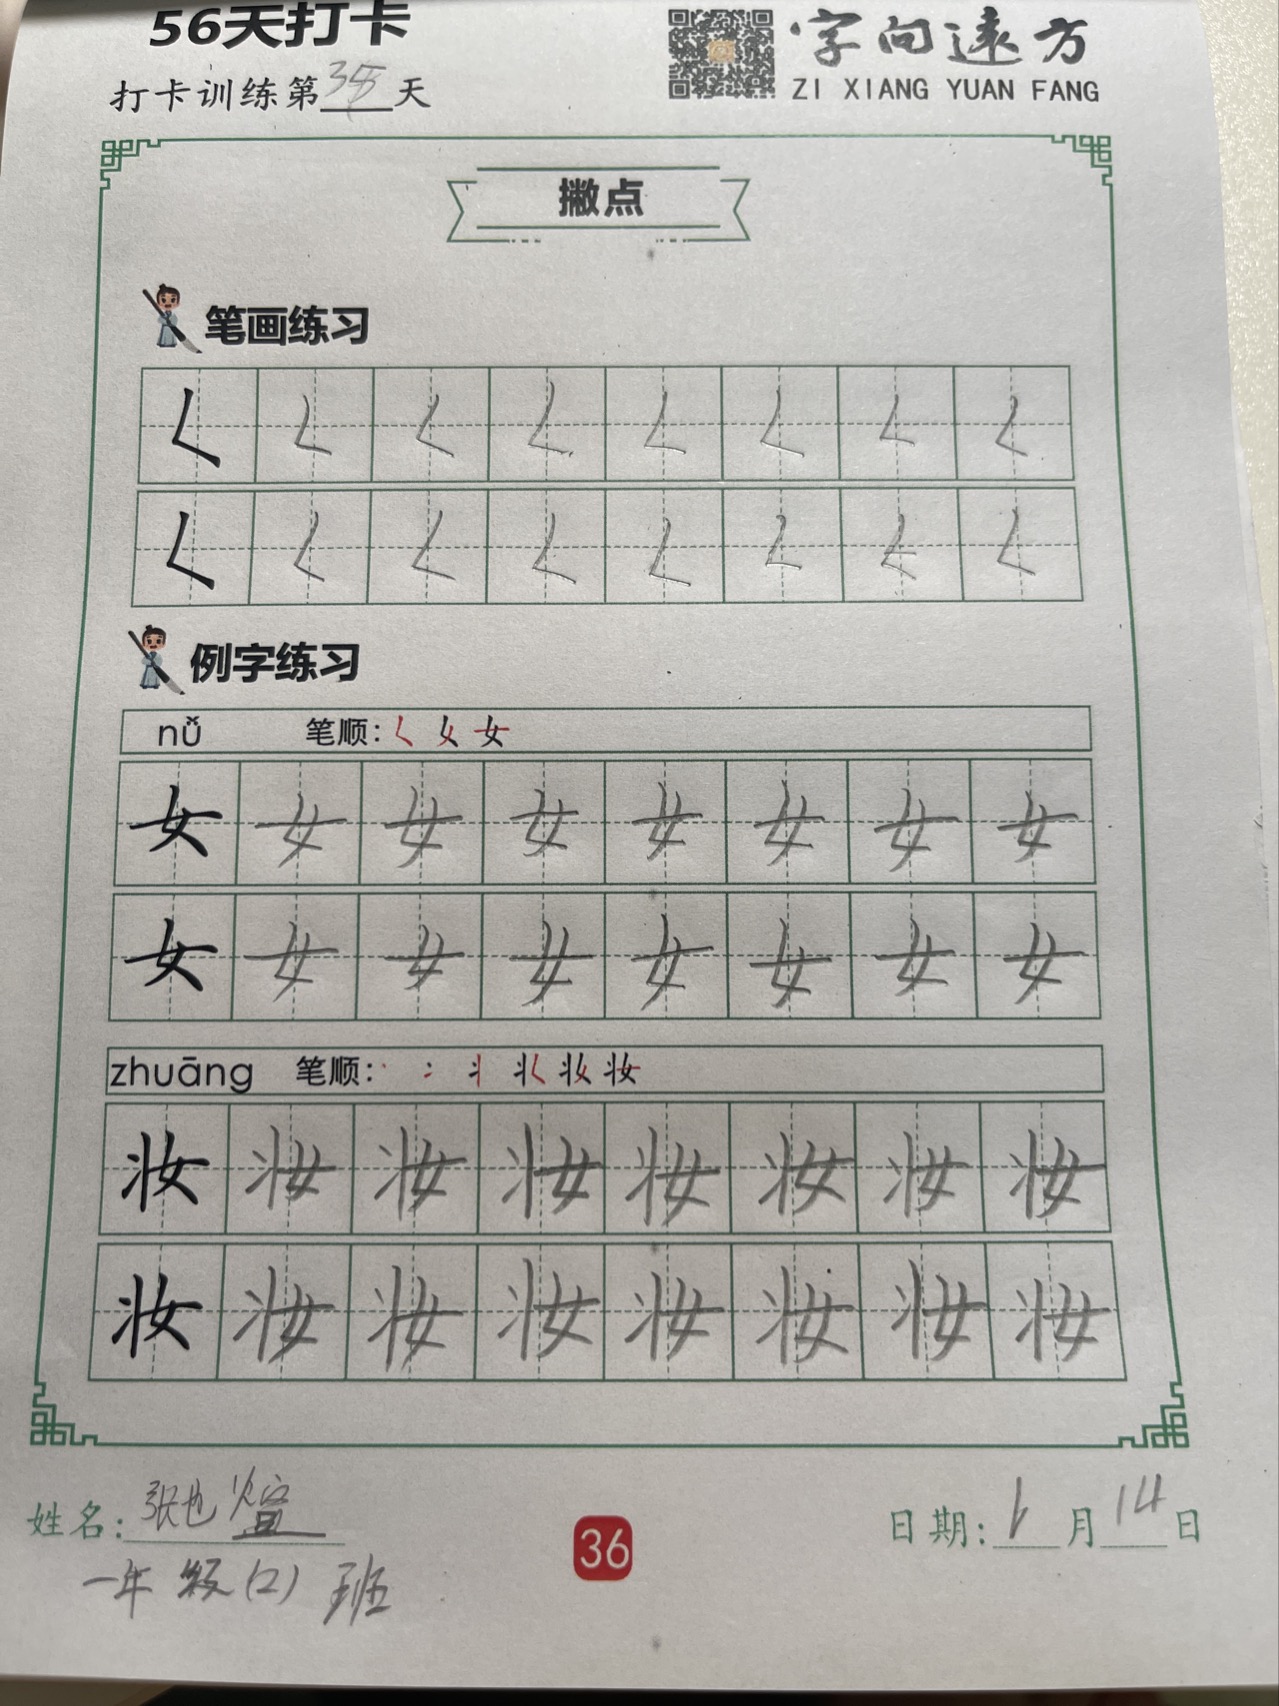 56天打卡
字向远方
打卡训练第35天
ZI XIANG YUAN FANG
撇点
笔画练习
𡿨 𡿨 𡿨 𡿨 𡿨 𡿨 𡿨 𡿨
𡿨 𡿨 𡿨 𡿨 𡿨 𡿨 𡿨 𡿨
例字练习
nǚ 笔顺: 𡿨 女 女
女 女 女 女 女 女 女 女
女 女 女 女 女 女 女 女
zhuāng 笔顺: 妆
妆 妆 妆 妆 妆 妆 妆 妆
妆 妆 妆 妆 妆 妆 妆 妆
姓名: 张也煊 36 日期: 1月14日
一年级(2)班